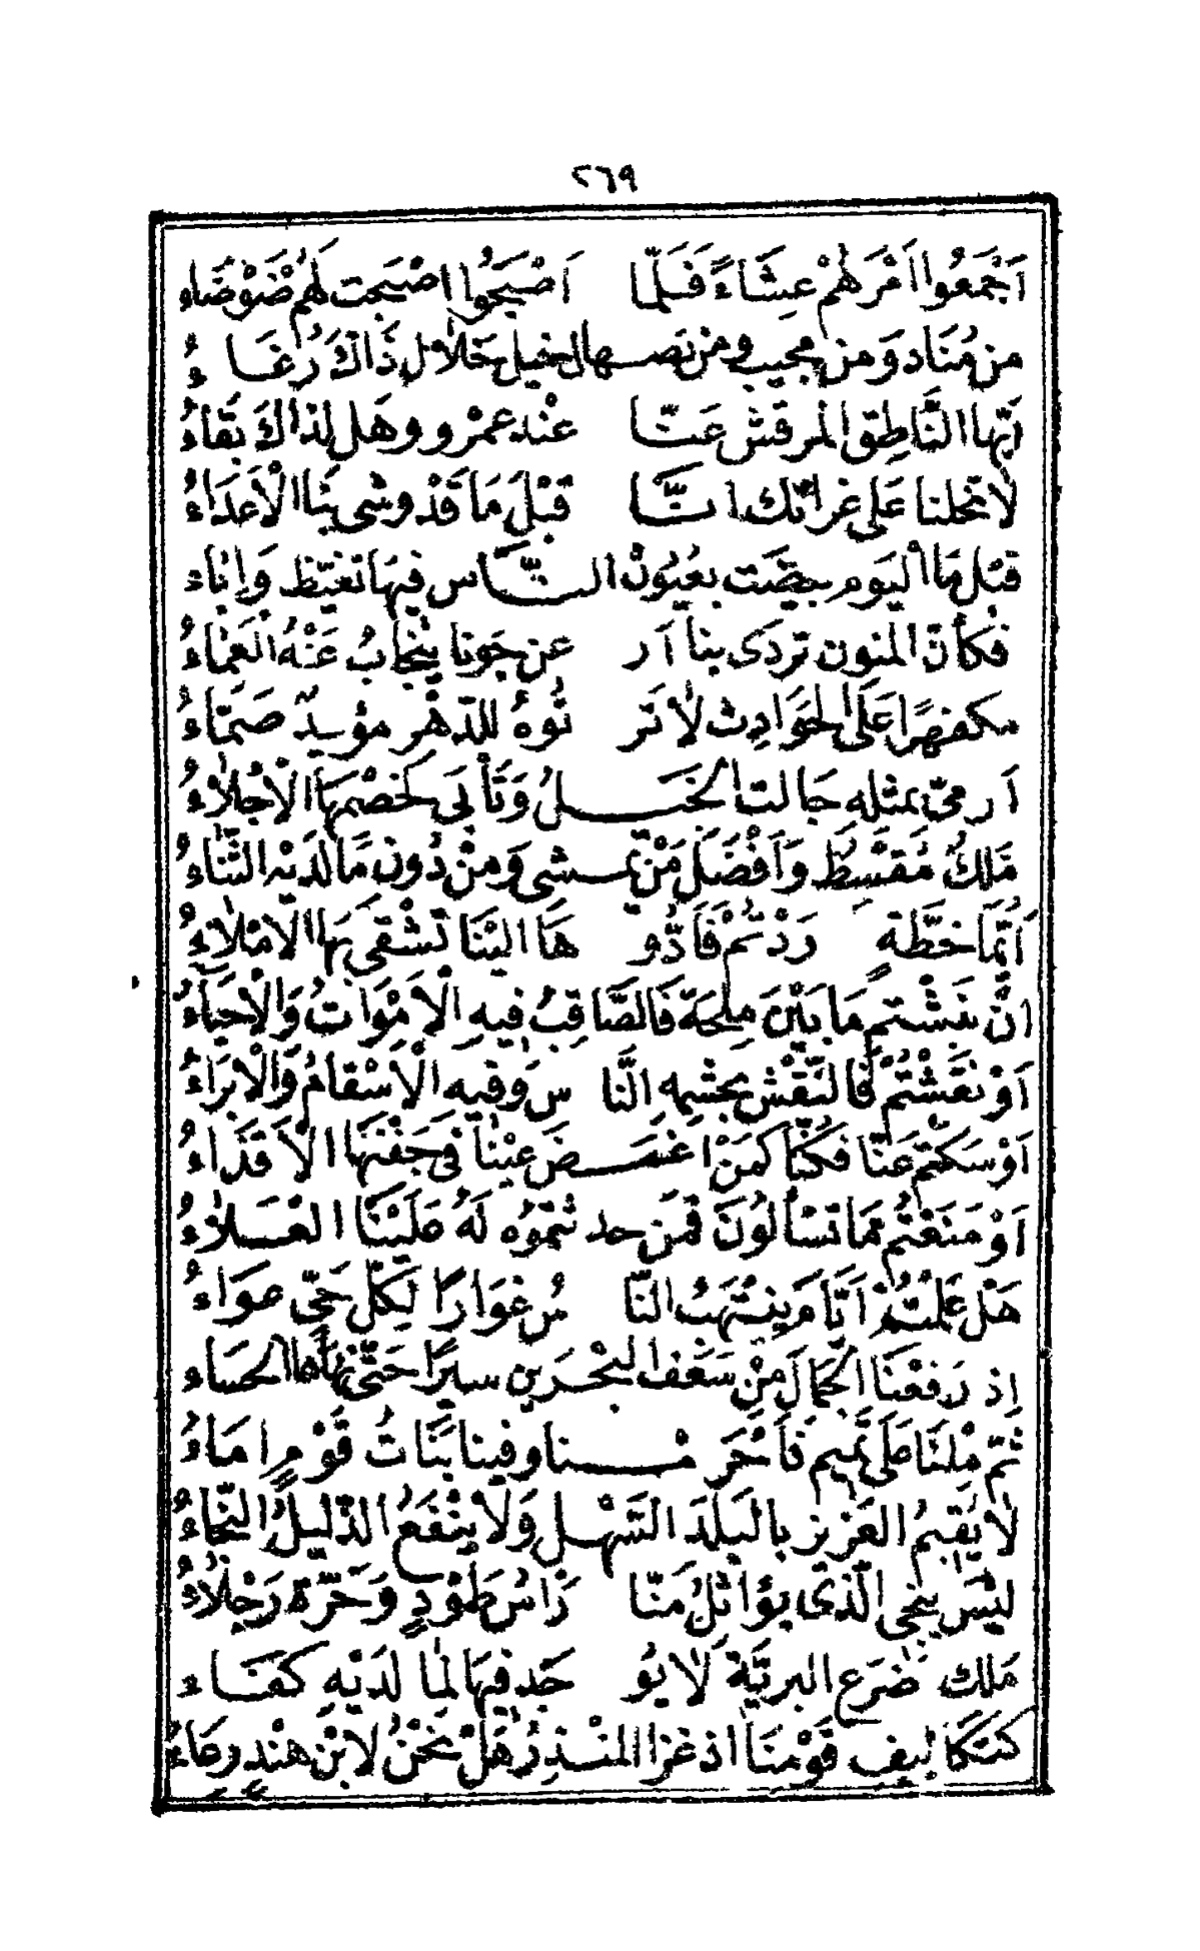 ٢٦٩
اَجْمَعُوا اَمْرَهُمْ عِشَاءً فَلَمَّا اَصْبَحُوا اصْبَحت لَهُمْ ضَوْضَاء
من مُنَادٍ وَمن مجيبٍ ومن تصهال خيل خلال ذَاكَ رُغَاءُ
اَيّها النَّاطِق المرقش عَنّا عنْد عمْرو وهَل لذاكَ بَقَاءُ
لا تخلنا عَلى غراتك انّا قَبْلَ مَا قَدْ وشى بنَا الْاَعدَاءُ
قبْل مَا اليَوم بيضت بعُيُون النَّاس فيهَا تغيّظ وَاِبَاء
فكأنّ المنون تردَى بنا اَر عن جَونا ينجَابُ عَنْهُ الْعَمَاءُ
مكفهرًا عَلَى الحَوَادِث لَا تَر تُوهُ للدّهْر مؤيد صَمَّاءُ
اَرمىّ بمثله جَالت الخَيلُ وَتَأبَى لخَصْمهَا الْاَجْلَاءُ
مَلكٌ مُقسِطٌ وَاَفْضَل مَنْ يمشى وَمنْ دُون مَا لَدَيْه الثّنَاءُ
اَيَّمَا خطَّة رَدْتُمْ فَاَدُّو هَا اليْنَا تَشْقَى بهَا الْاَمْلَاءُ
انْ نَبَشْتم مَا بَيْنَ مِلحَة فَالصَّاقِبُ فيهِ الْاَمْوَاتُ وَالْاَحيَاءُ
اَوْ نَقَشْتُمْ فَالنّقْش يجشمه النَّا سُ وَفيه الْاَسْقامُ وَالْاِبرَاءُ
اَوْ سَكتّم عَنّا فكنَّا كمَنْ اغمَضَ عيْنا فى جَفْنهَا الْاَقذَاءُ
اَوْ مَنَعْتُم مَا تسْألُونَ فَمَن حدثتموُه لَهُ عَلَيْنَا العَلَاءُ
هَل عَلمْتُمْ اَيَّامَ ينْتَهَبُ النَّا سُ غوَارًا لكلّ حَىّ عوَاءُ
اِذ رَفعْنَا الجمَالَ منْ سَعَف البحْرَين سيرًا حَتّى نهَاهَا الحسَاء
ثمّ مِلْنَا عَلَى تَميم فَاَحْرَمْنا وفينا بَنَاتُ قَوْمٍ اِمَاءُ
لَا يُقيمُ العَزيز بالبَلَد السَّهْل وَلَا ينْفَعُ الذّليلُ النّجَاءُ
ليْسَ ينجى الّذى يؤائلُ منّا رَاسُ طَوْدٍ وَحَرّة رَجْلَاءُ
مَلك ضَرَع البريَّة لَا يُو جَد فيهَا لمَا لَدَيْهِ كفَاء
كتكَاليف قَوْمنَا اذ غزا المنْذرُ هَلْ نَحْنُ لابْن هنْدٍ رعَاءُ